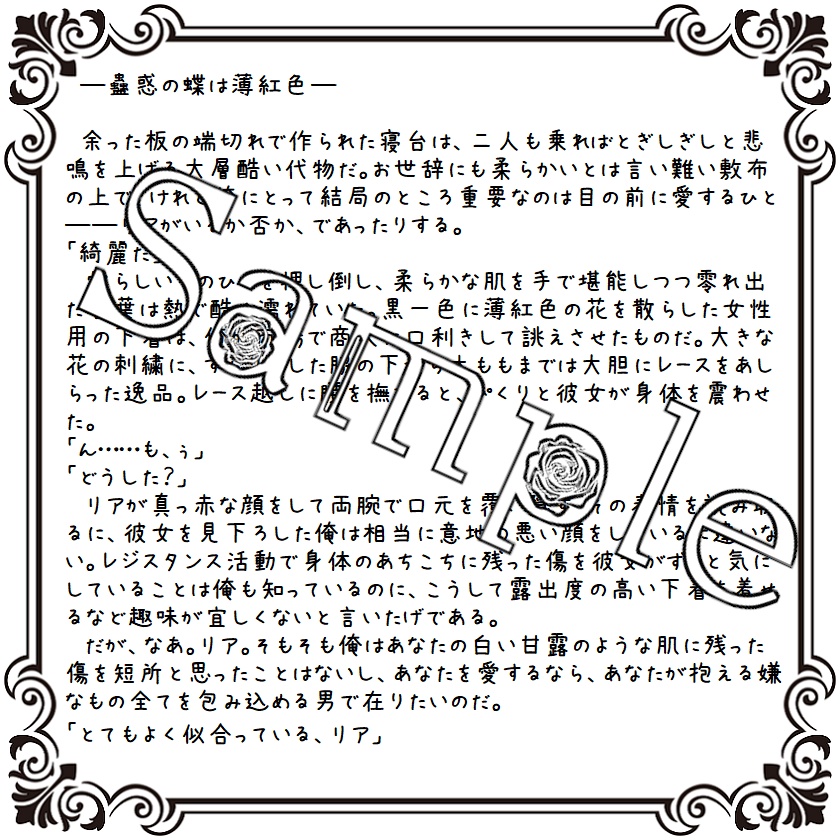 ―蠱惑の蝶は薄紅色―
余った板の端切れで作られた寝台は、二人も乗ればとぎしぎしと悲
鳴を上げる大層酷い代物だ。お世辞にも柔らかいとは言い難い敷布
の上で にとって結局のところ重要なのは目の前に愛するひと
――リアがいるか否か、であったりする。
「綺麗だ
らしい のひ を押し倒し、柔らかな肌を手で堪能しつつ零れ出
た 葉は熱で酷く濡れていた。黒一色に薄紅色の花を散らした女性
用の下着は、 で商人に口利きして誂えさせたものだ。大きな
花の刺繍に、 した の下 太ももまでは大胆にレースをあし
らった逸品。レース越しに を撫 ると、 くりと彼女が身体を震わせ
た。
「ん……も、ぅ」
「どうした？」
リアが真っ赤な顔をして両腕で口元を の表情を読み取
るに、彼女を見下ろした俺は相当に意地の悪い顔をしているに違いな
い。レジスタンス活動で身体のあちこちに残った傷を彼女がず と気に
していることは俺も知っているのに、こうして露出度の高い下着を着せ
るなど趣味が宜しくないと言いたげである。
だが、なあ。リア。そもそも俺はあなたの白い甘露のような肌に残った
傷を短所と思ったことはないし、あなたを愛するなら、あなたが抱える嫌
なもの全てを包み込める男で在りたいのだ。
「とてもよく似合っている、リア」
Sample